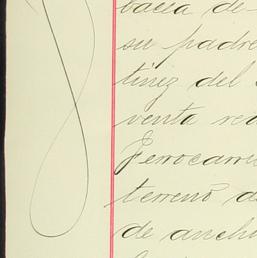 bacea de
su padre
tinez del
venta re
Ferrocarri
terreno d
de anch